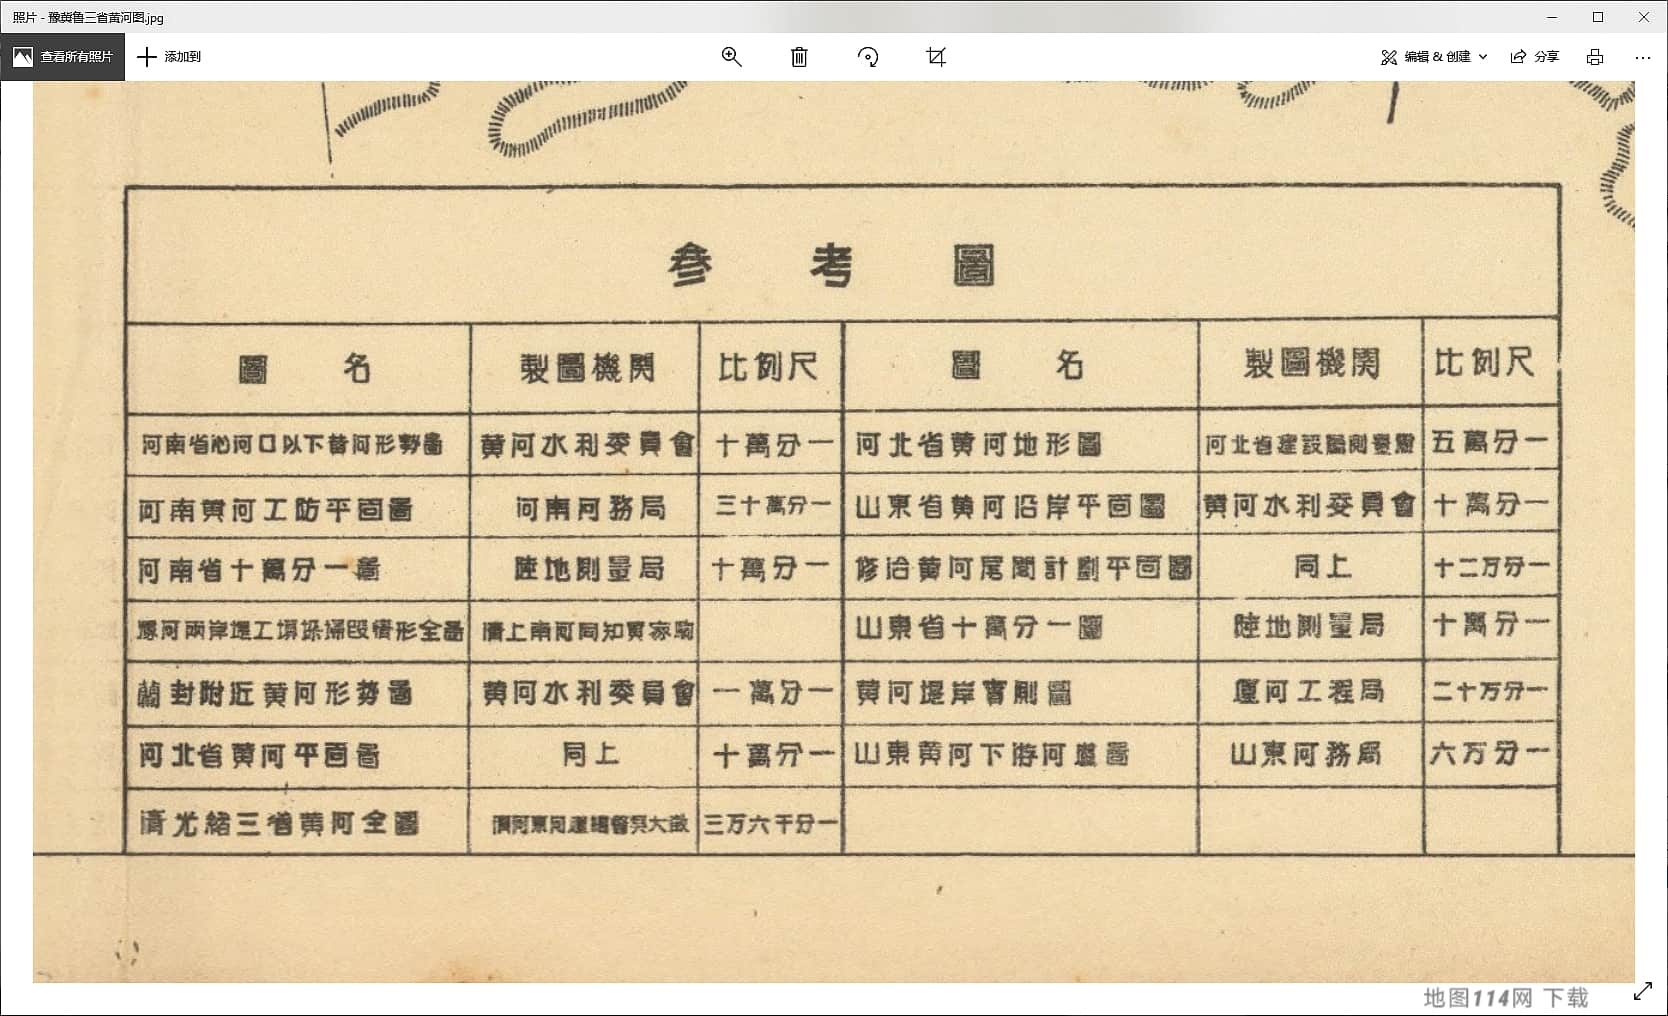 照片 - 豫冀鲁三省黄河图.jpg
查看所有照片 添加到 编辑 & 创建 分享
參考圖
圖名 製圖機関 比例尺 圖名 製圖機関 比例尺
河南省沁河口以下黃河形勢圖 黄河水利委員會 十萬分一 河北省黄河地形圖 河北省建設廳測量處 五萬分一
河南黄河工防平面圖 河南河務局 三十萬分一 山東省黄河沿岸平面圖 黄河水利委員會 十萬分一
河南省十萬分一圖 陸地測量局 十萬分一 修治黄河尾閭計劃平面圖 同上 十二万分一
豫河兩岸堤工壩垛掃段情形全圖 山東省十萬分一圖 陸地測量局 十萬分一
蘭封附近黄河形勢圖 黄河水利委員會 一萬分一 黄河堤岸實測圖 運河工程局 二十万分一
河北省黄河平面圖 同上 十萬分一 山東黄河下游河道圖 山東河務局 六万分一
清光緒三省黄河全圖 三万六千分一
地图114网 下载